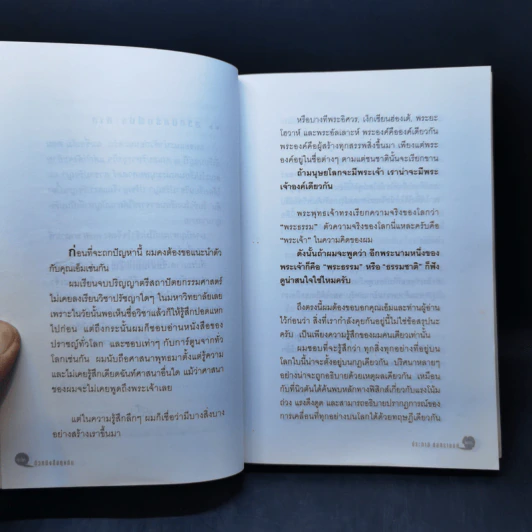 ก่อนที่จะถกปัญหานี้ ผมคงต้องขอแนะนำตัว
กับคุณเอ๋มเช่นกัน
ผมเรียนจบปริญญาตรีสถาปัตยกรรมศาสตร์
ไม่เคยลงเรียนวิชาปรัชญาใดๆ ในมหาวิทยาลัยเลย
เพราะในวัยนั้นพอเห็นชื่อวิชาแล้วก็ให้รู้สึกปอดแหก
ไปก่อน แต่ถึงกระนั้นผมก็ชอบอ่านหนังสือของ
ปราชญ์ทั่วโลก และชอบเท่าๆ กับการ์ตูนจากทั่ว
โลกเช่นกัน ผมนับถือศาสนาพุทธมาตั้งแต่รู้ความ
และไม่เคยรู้สึกเดียดฉันท์ศาสนาอื่นใด แม้ว่าศาสนา
ของผมจะไม่เคยพูดถึงพระเจ้าเลย
แต่ในความรู้สึกลึกๆ ผมก็เชื่อว่ามีบางสิ่งบาง
อย่างสร้างเราขึ้นมา
หรือบางทีพระอิศวร, เง็กเซียนฮ่องเต้, พระยะ
โฮวาห์ และพระอัลเลาะห์ พระองค์คือองค์เดียวกัน
พระองค์คือผู้สร้างทุกสรรพสิ่งขึ้นมา เพียงแต่พระ
องค์อยู่ในชื่อต่างๆ ตามแต่ชนชาตินั้นจะเรียกขาน
ถ้ามนุษย์โลกจะมีพระเจ้า เราน่าจะมีพระ
เจ้าองค์เดียวกัน
พระพุทธเจ้าทรงเรียกความจริงของโลกว่า
“พระธรรม” ตัวความจริงของโลกนี่แหละครับ คือ
“พระเจ้า” ในความคิดของผม
ดังนั้นถ้าผมจะพูดว่า อีกพระนามหนึ่งของ
พระเจ้าก็คือ “พระธรรม” หรือ “ธรรมชาติ” ก็ฟัง
ดูน่าสนใจใช่ไหมครับ
ถึงตรงนี้ผมต้องขอบอกคุณเอ๋มและท่านผู้อ่าน
ไว้ก่อนว่า สิ่งที่เรากำลังคุยกันอยู่นี้ไม่ใช่ข้อสรุปนะ
ครับ เป็นเพียงความรู้สึกของผมคนเดียวเท่านั้น
ผมชอบที่จะรู้สึกว่า ทุกสิ่งทุกอย่างที่อยู่บน
โลกใบนี้น่าจะตั้งอยู่บนกฎเดียวกัน ปริศนาหลายๆ
อย่างน่าจะถูกอธิบายด้วยเหตุผลเดียวกัน เหมือน
กับที่นิวตันได้ค้นพบหลักทางฟิสิกส์เกี่ยวกับแรงโน้ม
ถ่วง แรงดึงดูด และสามารถอธิบายปรากฏการณ์ของ
การเคลื่อนที่ทุกอย่างบนโลกได้ด้วยทฤษฎีเดียวกัน